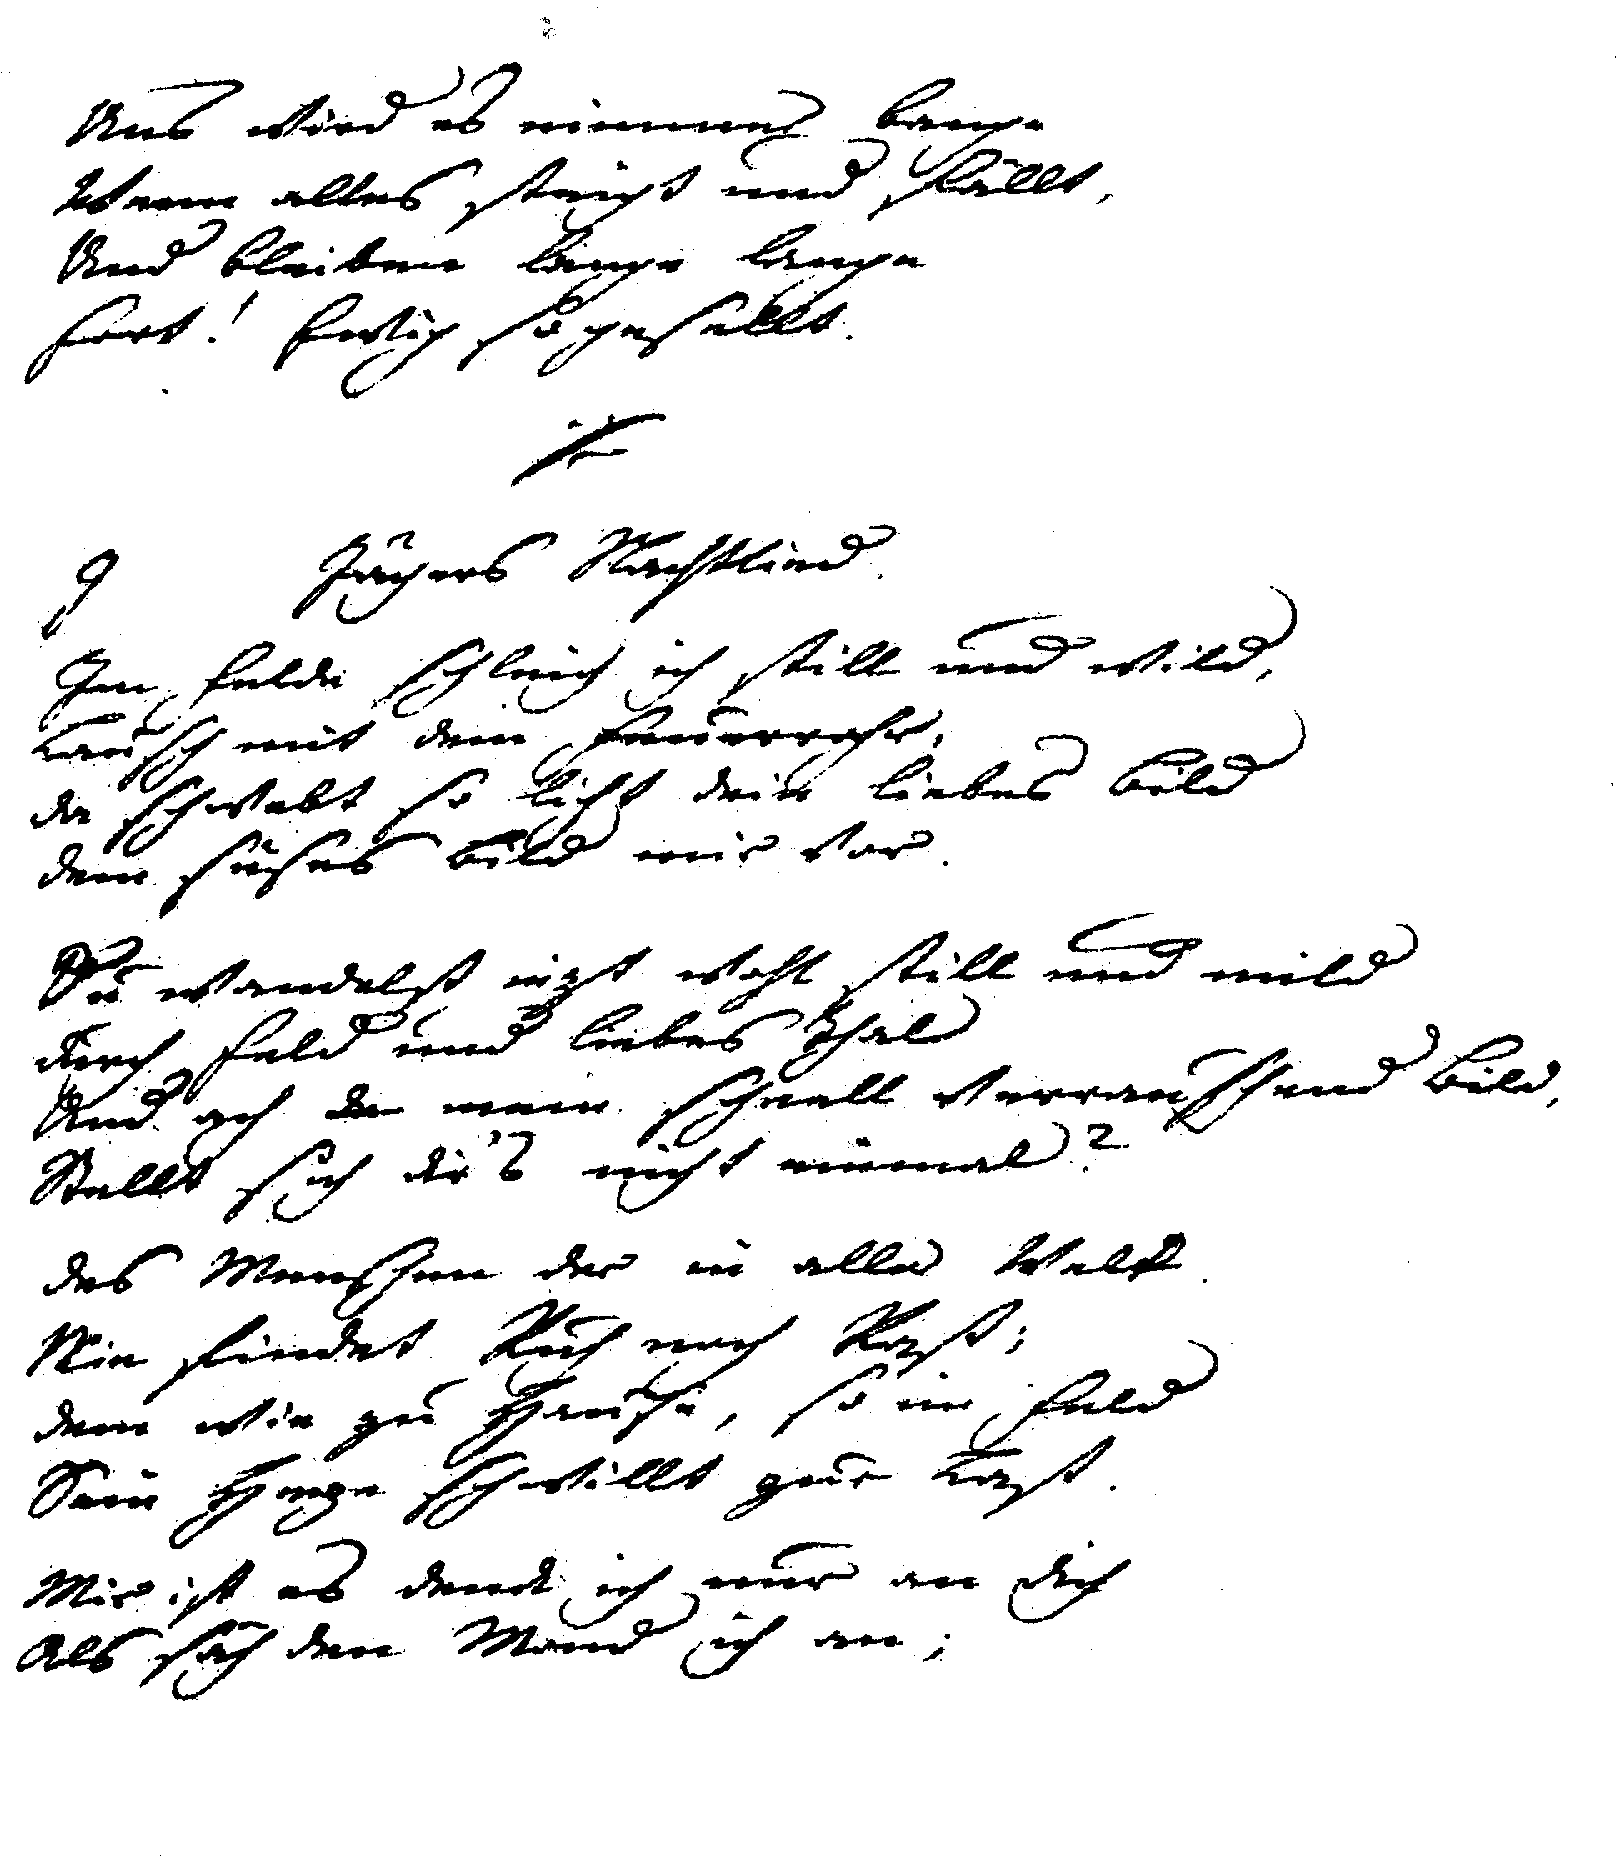 Uns wird es nimmer bange
Wenn alles steigt und fällt,
Und bleiben lange lange
fort! Ewig so gesellt.
9 Jägers Nachtlied.
Im Felde schleich ich still und wild,
Lausch mit dem Feuerrohr,
da schwebt so licht dein liebes Bild
dein süses Bild mir vor.
Du wandelst iezt wohl still und mild
durch Feld und liebes Thal
Und ach da mein schnell verrauschend Bild,
Stellt sich dir's nicht einmal?
des Menschen der in aller Welt
Nie findet Ruh noch Rast;
dem wie zu Hause, so im Feld
Sein Herze schwillt zur Last.
Mir ist es denck ich nur an dich
Als säh den Mond ich an;